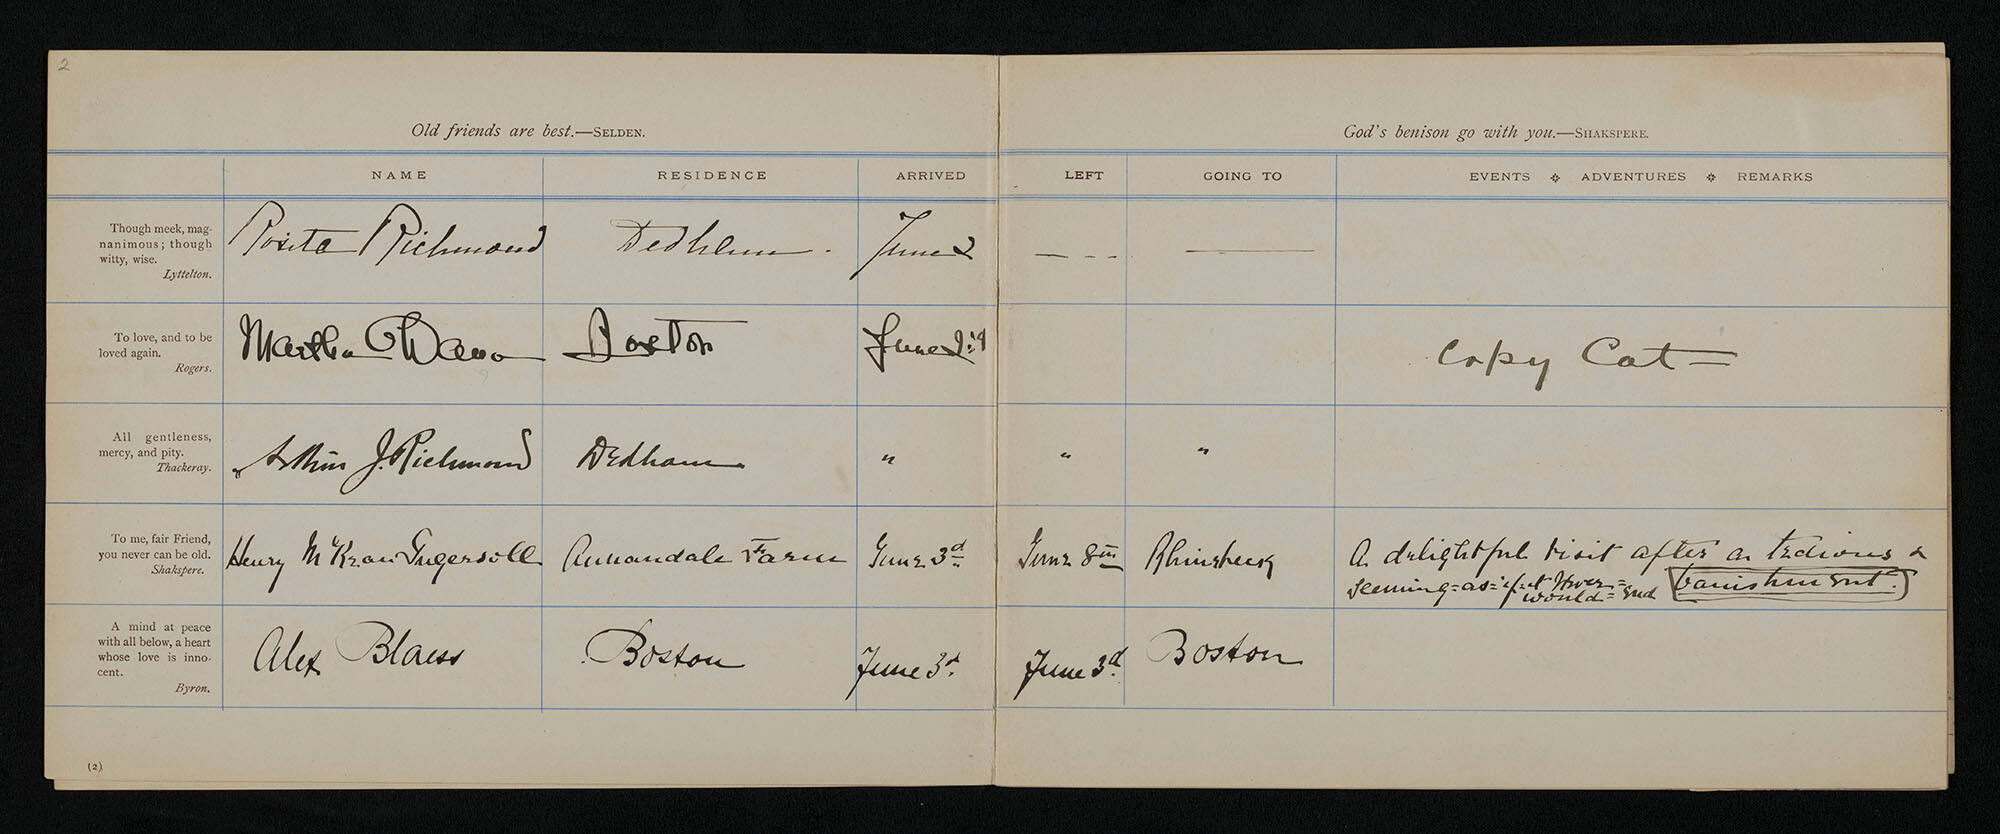 2
Old friends are best.—SELDEN.
God's benison go with you.—SHAKSPERE.
NAME RESIDENCE ARRIVED LEFT GOING TO EVENTS ADVENTURES REMARKS
Though meek, mag-
nanimous; though
witty, wise.
Lyttelton.
Rosita Richmond Dedham. June 2
To love, and to be
loved again.
Rogers.
Martha Boston June
Copy Cat
All gentleness,
mercy, and pity.
Thackeray.
Arthur J. Richmond Dedham " " "
To me, fair Friend,
you never can be old.
Shakspere.
Henry McKean Ingersoll Annandale Farm June 3d June 8th Rhinebeck A delightful visit after a tedious &
seeming-as-if-it-never-
would-end banishment.
A mind at peace
with all below, a heart
whose love is inno-
cent.
Byron.
Alex Blaess Boston June 3d. June 3d. Boston
(2)